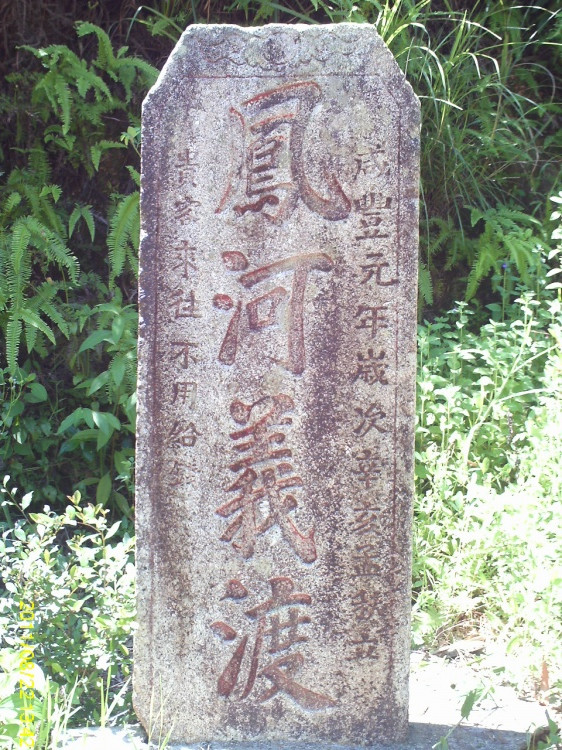 咸豐元年歲次辛亥孟秋立
鳳河義渡
貴客來往不用給錢